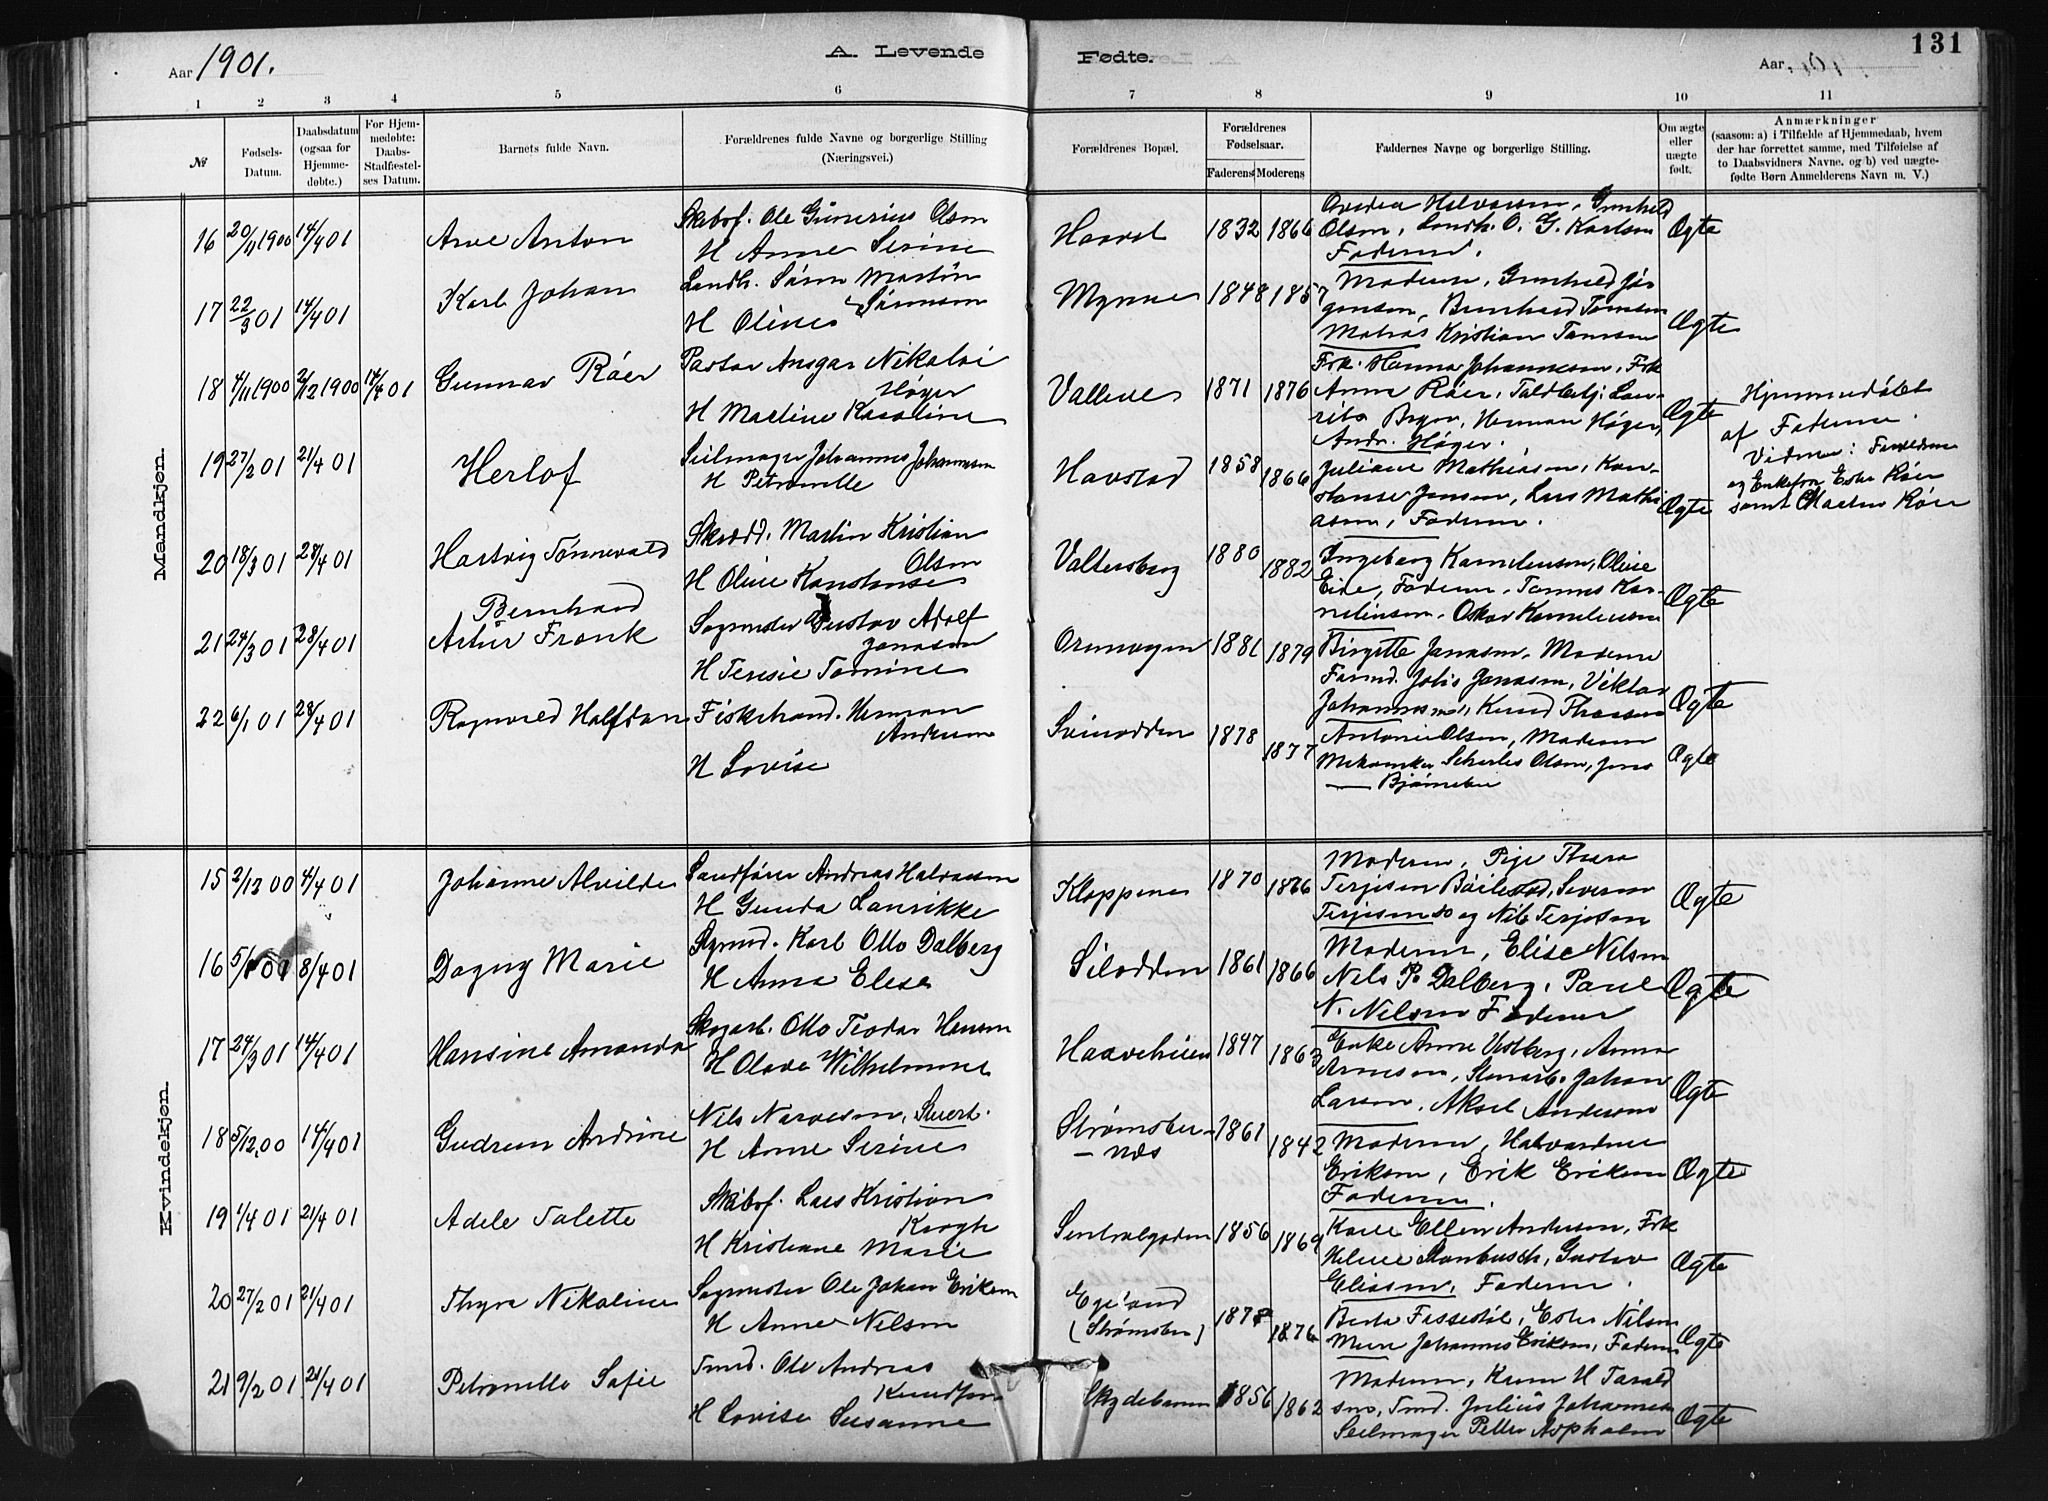 Aar 1901.
A. Levende
Fødte.
Aar
131
1 2 3 4 5 6 7 8 9 10 11
№
Fødsels-Datum.
Daabsdatum (ogsaa for Hjemmedøbte.)
For Hjemmedøbte: Daabs-Stadfæstelses Datum.
Barnets fulde Navn.
Forældrenes fulde Navne og borgerlige Stilling
(Næringsvei.)
Forældrenes Bopæl.
Forældrenes Fødselsaar.
Faderens Moderens
Faddernes Navne og borgerlige Stilling.
Om ægte eller uægte født.
Anmærkninger
(saasom: a) i Tilfælde af Hjemmedaab, hvem
der har forrettet samme, med Tilføielse af
to Daabsvidners Navne. og b) ved uægte-
fødte Børn Anmelderens Navn m. V.)
Mandkjøn.
16 20/11 1900 14/4 01 Arve Anton
Skibsf. Ole Gunerius Olsen
H Anne Serine
1832 1866
Olsen, Landh. O. G. Karlsen
Faderen.
Ægte
17 22/3 01 14/4 01 Karl Johan
Landh. Søren Martin
Sørensen
H Oline
Myrene 1848 1857
Moderen, Gunhild Jør
gensen, Bernhard Tomsen
Matros Kristian Tomsen
Ægte
18 4/11 1900 2/12 1900 14/4 01 Gunnar Röer
Pastor Ansgar Nikolai
Høyer
H Martine Karoline
Vallene 1871 1876
Frk. Hanna Johannesen, Frk
Anna Röer, Toldbetj. Lau-
rits, Herman Høyer,
Andr. Høyer.
Ægte
Hjemmedøbt
af Faderen.
Vidner: Forældrene
og Enkefru Ester Röer
samt Martin Röer
19 27/2 01 21/4 01 Herlof
Seilmager Johannes Johannesen
H Petronelle
Havstad 1858 1866
Juliane Mathiasen, Kon-
stanse Jensen, Lars Mathi
asen, Faderen.
Ægte
20 18/3 01 28/4 01 Hartvig Tønnevald
Bernhard
Skrædd. Martin Kristian
Olsen
H Oline Konstanse
Valtersberg 1880 1882
Ingeborg Kornelius​en, Oline
Eide, Faderen, Tomas Kor-
neliusen, Oskar Korneliusen
Ægte
21 24/3 01 28/4 01 Artur Frank
Sagmester Gustav Adolf
Jonassen
H Teresie Tomine
1881 1879
Birgitte Jonasen, Moderen
Johannesen, Knud
Ægte
22 6/1 01 28/4 01 Ragnvald Halfdan
Fiskehand. Herman
Andersen
H Lovise
Svinodden 1878 1877
Antonie Olsen, Moderen
Mekaniker Scharles Olsen, Jens
Ægte
Kvindekjøn.
15 2/12 00 4/4 01 Johanne Alvilde
Sandfører Andreas Halvorsen
H Gunda Laurikke
Kloppene 1870 1876
Moderen, Pige Thora
Terjesen, Severin
Terjesen og Nils Terjesen
Ægte
16 8/4 01 Dagny Marie
Karl Otto Dalberg
H Anna Elese
Silodden 1861 1866
Moderen, Elise Nilsen
Nils P. Dalberg, Paul
N. Nilsen Faderen
Ægte
17 24/3 01 14/4 01 Hansine Amanda
Skogarb. Otto Teodor Hansen
H Olava Wilhelmine
1847 1863
Enke Anne Vestberg, Anna
Arnesen, Stenarb. Johan
Larsen, Aksel Andersen
Ægte
18 5/12 00 14/4 01 Gudrun Andrine
Nils Narvesen,
H Anne Serine
Strømsbu-
næs 1861 1842
Moderen,
Eriksen, Erik Eriksen
Faderen.
Ægte
19 1/4 01 21/4 01 Adele Talette
Skibsf. Lars Kristian
Krogh
H Kristiane Marie
Sentralgaden 1856 1869
Karen Ellen Andersen, Frk
Helene Stenbusch, Gustav
Eliassen, Faderen.
Ægte
20 27/2 01 21/4 01 Thyra Nikoline
Sagmester Ole Johan Eriksen
H Anne Nilsen
Egeland
(Strømsbu) 1878 1876
Berta Fissestøl, Ester Nilsen
Johannes Eriksen, Faderen
Ægte
21 9/2 01 21/4 01 Petronelle Sofie
Tmd. Ole Andreas
Knudsen
H Lovise Susanne
Skydebanen 1856 1862
Moderen, Karen H Tarald
sen, Tmd. Julius Johannesen
Seilmager Petter Aspholm
Ægte